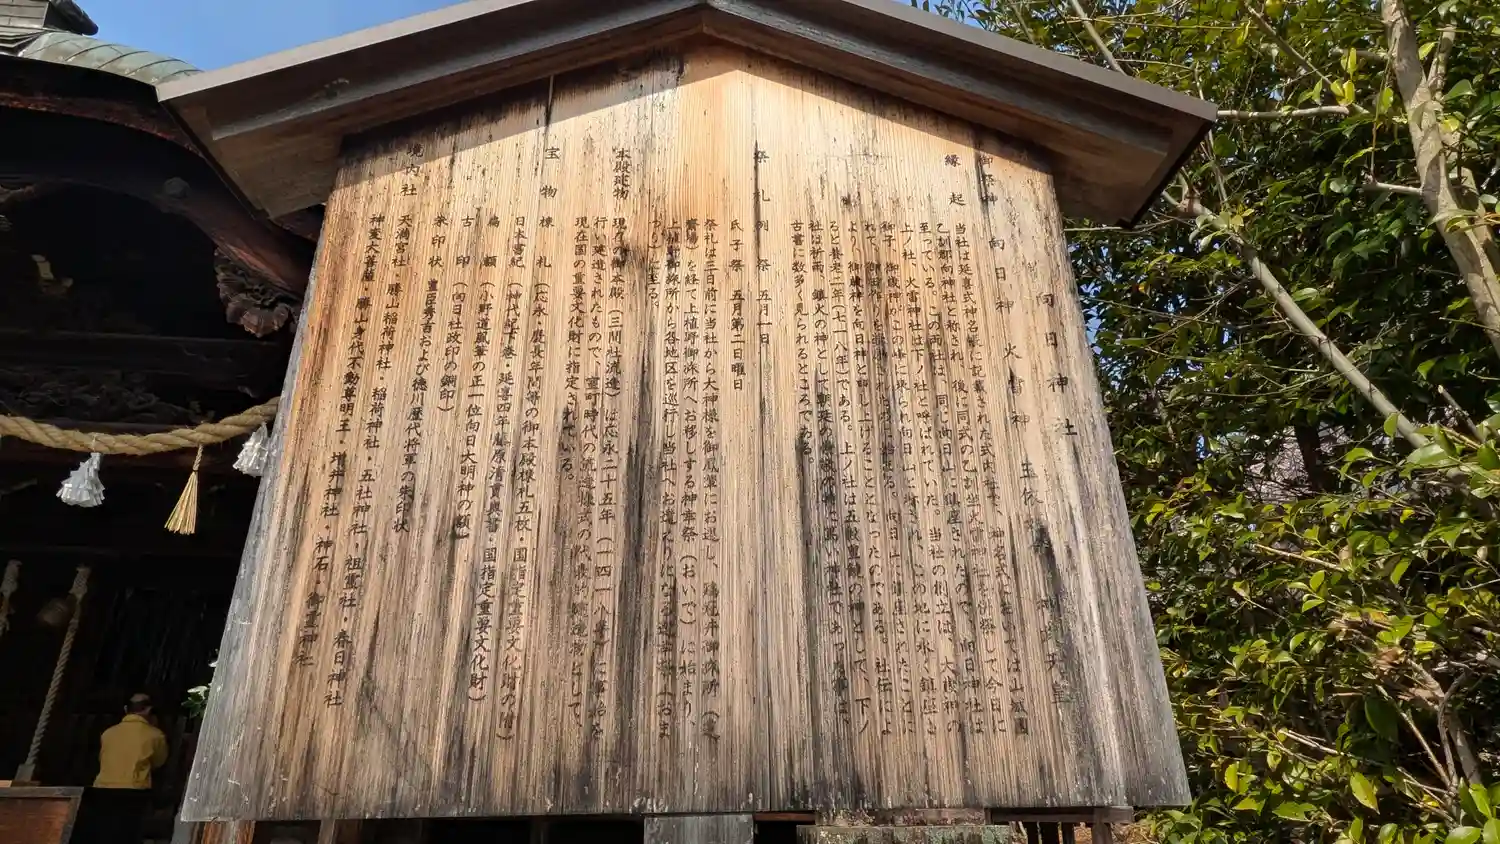 向日神社
御祭神 向日神 火雷神 玉依姫 神武天皇
縁起 当社は延喜式神名帳に記載された式内社で、神名式においては山城国
乙訓郡向神社と称され、後に同式の乙訓坐火雷神社を併祭して今日に
至っている。この両社は、同じ向日山に鎮座されたので、向日神社は
上ノ社、火雷神社は下ノ社と呼ばれていた。当社の創立は、大歳神の
御子、御歳神がこの峰に登られ向日山に 、この地に永く鎮座さ
れて、御田作りを されたのに始まる。向日山に鎮座されたことに
より、御歳神を向日神と申し上げることとなったのである。社伝によ
ると養老二年(七一八年)である。上ノ社は五穀豊饒の神として、下ノ
社は祈雨、鎮火の神として朝廷の 篤い神社であった は、
古書に数多く見られるところである。
祭礼 例祭 五月一日
氏子祭 五月第二日曜日
祭礼は三日前に当社から大神様を御鳳輦にお遷し、 御旅所(
)を経て上植野御旅所へお移しする神幸祭(おいで)に始まり、
上植野御旅所から各地区を巡行し当社へお還りになる還幸祭(おま
つり) る。
本殿建物 現在の御本殿(三間社流造)は応永二十五年(一四一八年)に
建造されたもので、室町時代の流造様式の代表的建造物として、
現在国の重要文化財に指定されている。
宝物 棟札 (応永・慶長年間等の御本殿棟札五枚・国指定重要文化財の附)
日本書紀 (神代紀下巻・延喜四年藤原清貫 書・国指定重要文化財)
扁額 (小野道風筆の正一位向日大明神の額)
古印 (向日社政印の銅印)
朱印状 豊臣秀吉および徳川歴代将軍の朱印状
境内社 天満宮社、勝山稲荷神社、稲荷神社、五社神社、祖霊社、春日神社
神変大菩薩・勝山身代不動尊明王、増井神社、神石、御霊神社